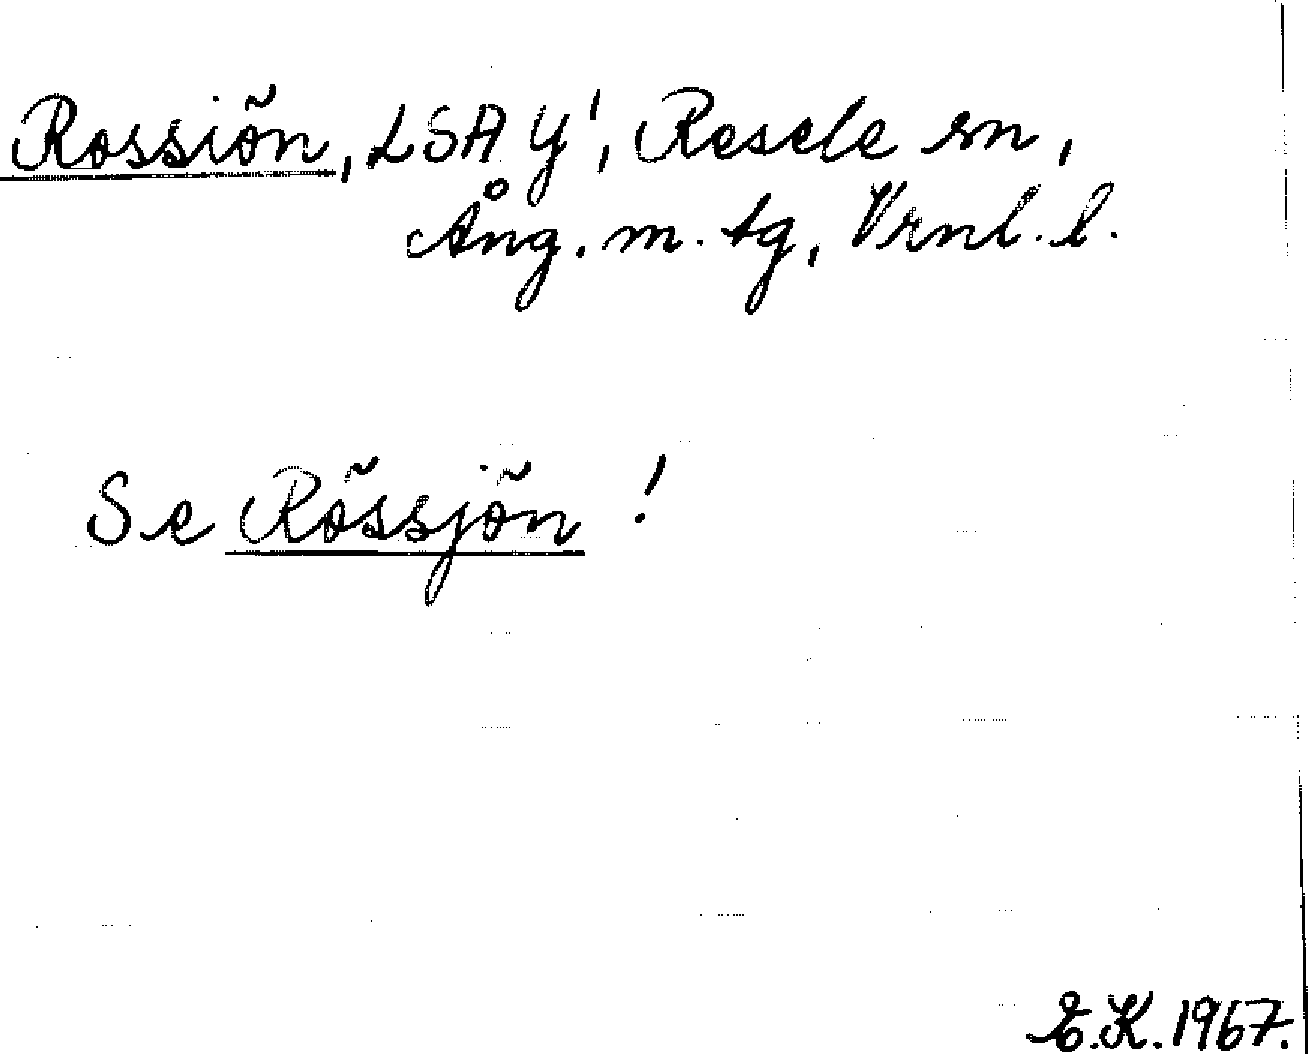 Rossiön, LSA Y', Resele sn,
Ång. m. tg, Vrnl. l.
Se Rössjön !
E.K. 1967.